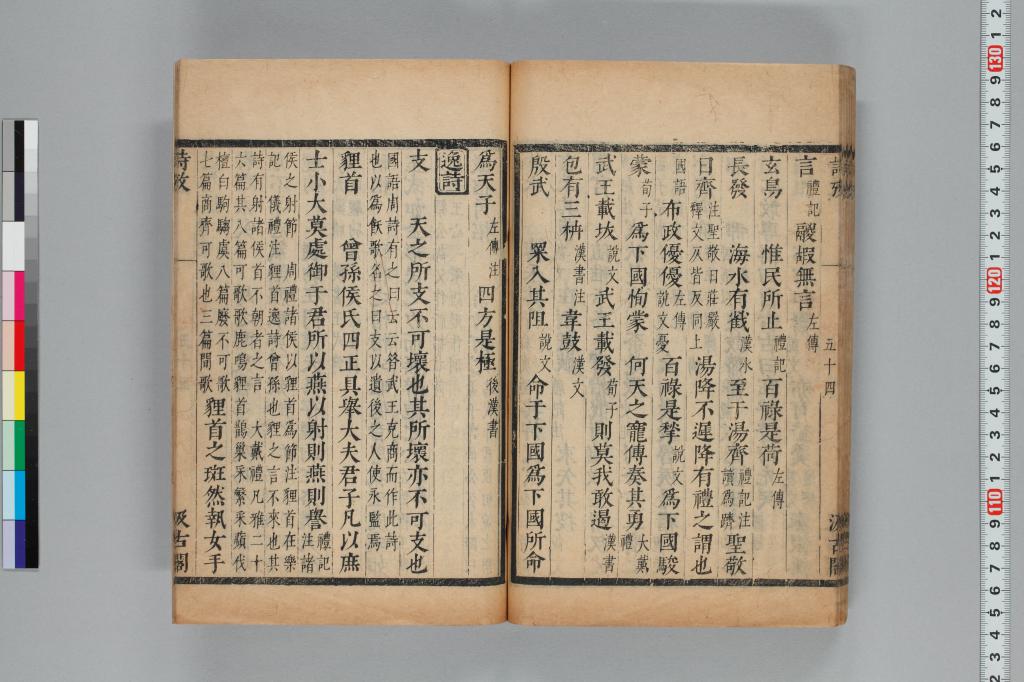 詩攷
五十四
汲古閣
言禮記 鬷嘏無言左傳
玄鳥 惟民所止禮記 百祿是荷左傳
長發 海水有截漢水 至于湯齊禮記注讀為躋 聖敬
日齊注聖敬日莊嚴釋文反皆反同上 湯降不遲降有禮之謂也
國語 布政優優左傳說文憂 百祿是揫說文 為下國駿
蒙荀子 為下國恂蒙 何天之寵傅奏其勇大戴禮
武王載坺說文 武王載發荀子 則莫我敢遏漢書
包有三枿漢書注 韋鼓漢文
殷武 罙入其阻說文 命于下國為下國所命
為天子左傳注 四方是極後漢書
逸詩
支 天之所支不可壞也其所壞亦不可支也
國語周詩有之曰云云昝武王克商而作此詩
也以為飫歌名之曰支以遺後之人使永監焉
貍首 曾孫侯氏四正具舉大夫君子凡以庶
士小大莫處御于君所以燕以射則燕則譽禮記注諸
侯之射節 周禮諸侯以貍首為節注貍首在樂
記 儀禮注貍首逸詩曾孫也貍之言不來也其
詩有射諸侯首不朝者之言 大戴禮凡雅二十
六篇其八篇可歌歌鹿鳴貍首鵲巢采蘩采蘋伐
檀白駒騶虞八篇廢不可歌
七篇商齊可歌也三篇閒歌 貍首之斑然執女手
詩攷
汲古閣